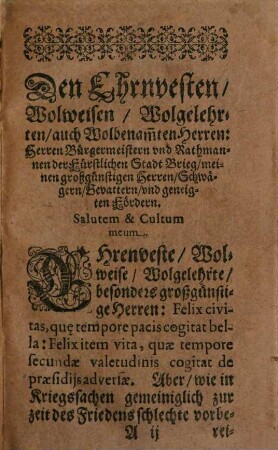 Den Ehrnvesten/
Wolweisen / Wolgelehr-
ten/auch Wolbenam̃ten Herren:
Herren Bürgermeistern vnd Rathman-
nen der Fürstlichen Stadt Brieg/mei-
nen großgünstigen Herren/Schwä-
gern/Gevattern/vnd geneig-
ten Fördern.
Salutem & Cultum
meum.
EHrenveste/ Wol-
weise / Wolgelehrte/
besonders großgünsti-
ge Herren: Felix civi-
tas, quę tempore pacis cogitat bel-
la: Felix item vita, quæ tempore
secundæ valetudinis cogitat de
præsidijs adversæ. Aber/wie in
Kriegssachen gemeiniglich zur
zeit des Friedens schlechte vorbe-
A ij rei-